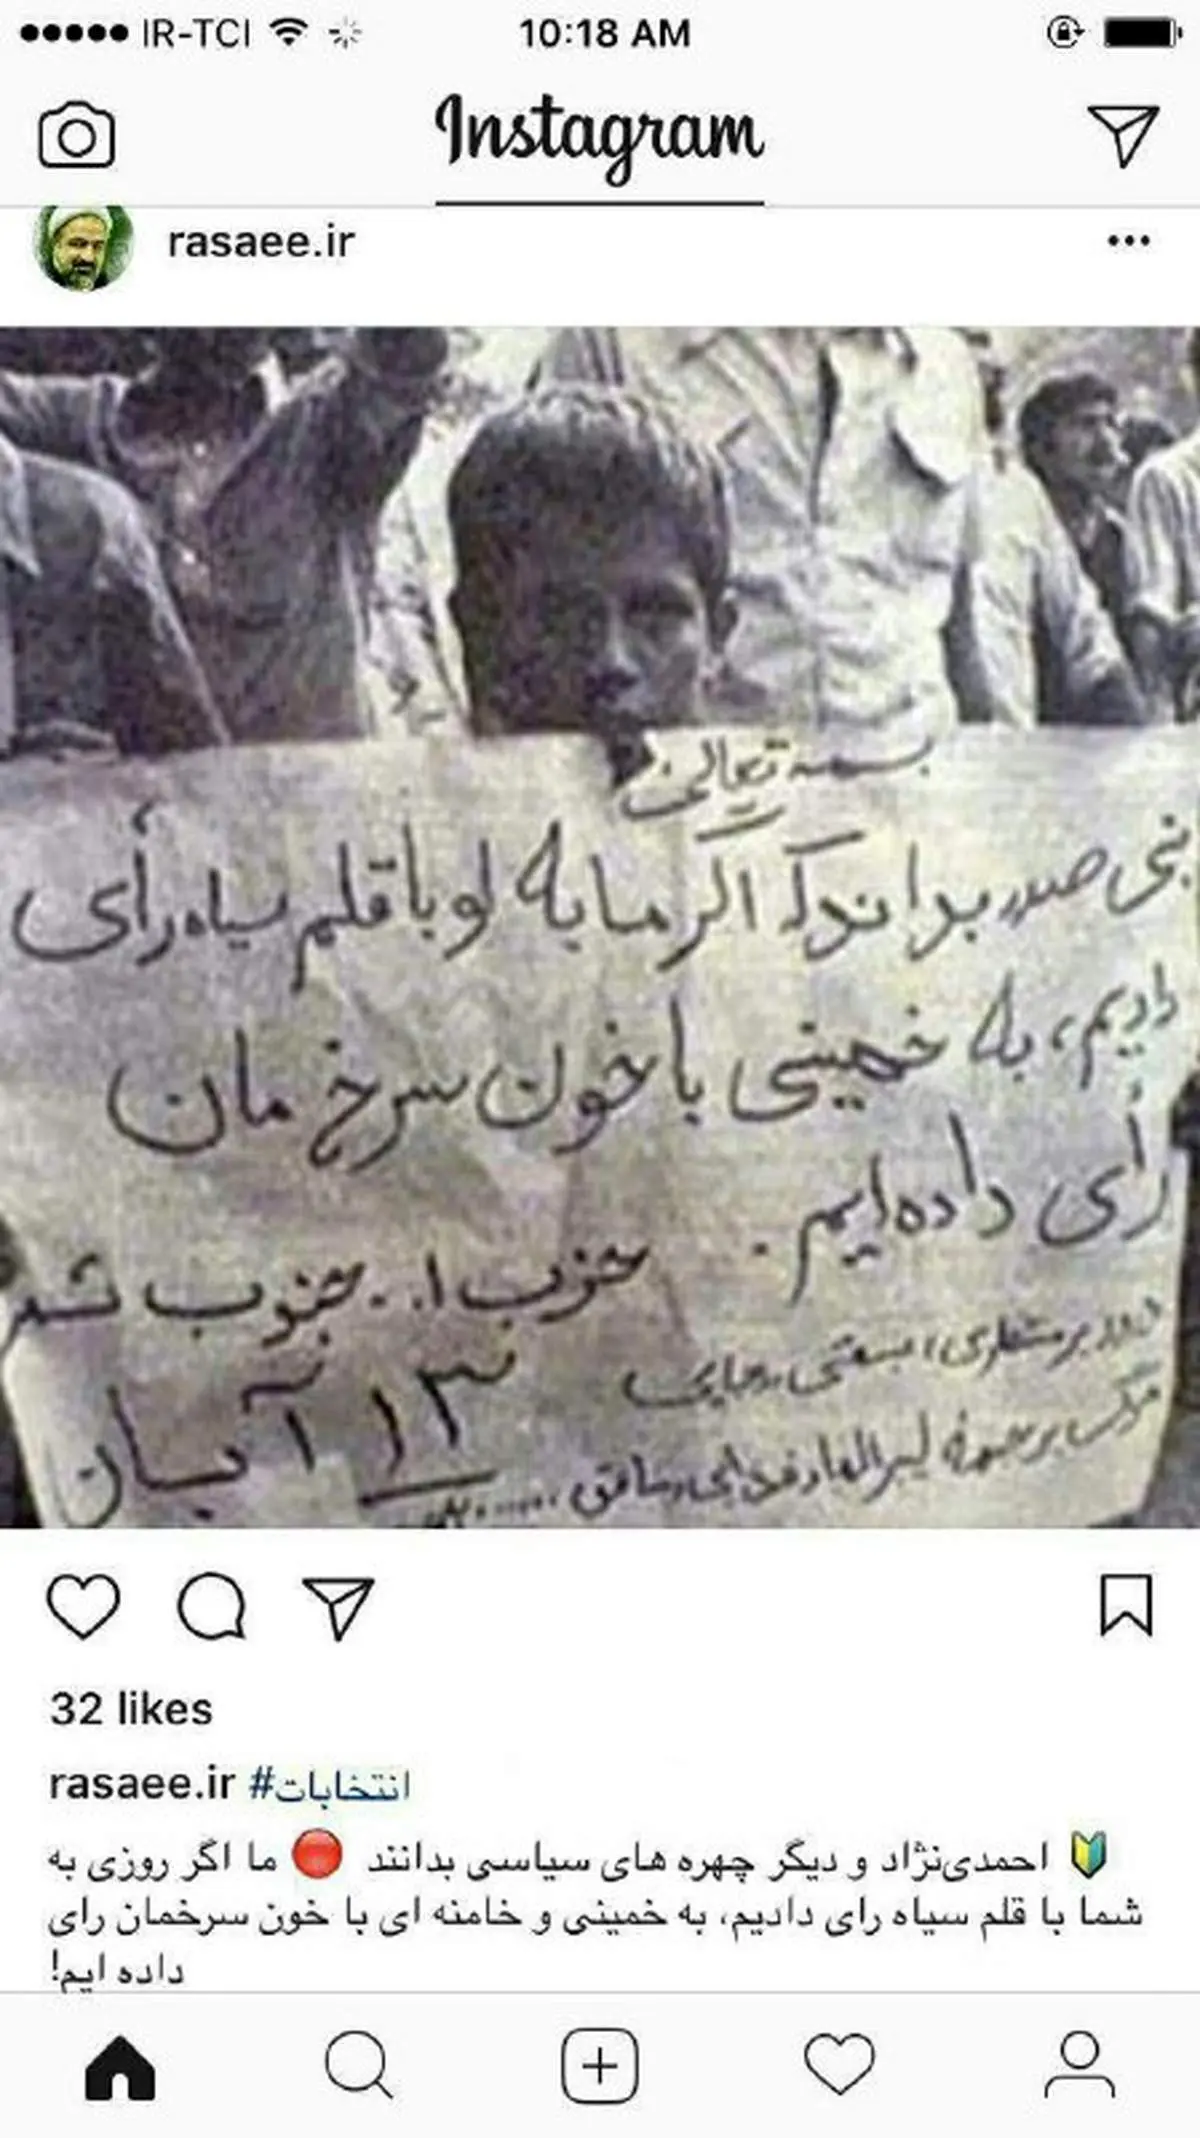 IR-TCI 10:18 AM
Instagram
rasaee.ir
بسمه تعالی
بنی صدر بداند که اگر ما به او با قلم سیاه رأی
دادیم، به خمینی با خون سرخ مان
رأی داده‌ایم.
حزب ا.. جنوب شهر
۱۳ آبان
32 likes
rasaee.ir #انتخابات
🔰 احمدی‌نژاد و دیگر چهره های سیاسی بدانند 🔴 ما اگر روزی به
شما با قلم سیاه رای دادیم، به خمینی و خامنه ای با خون سرخمان رای
داده ایم!